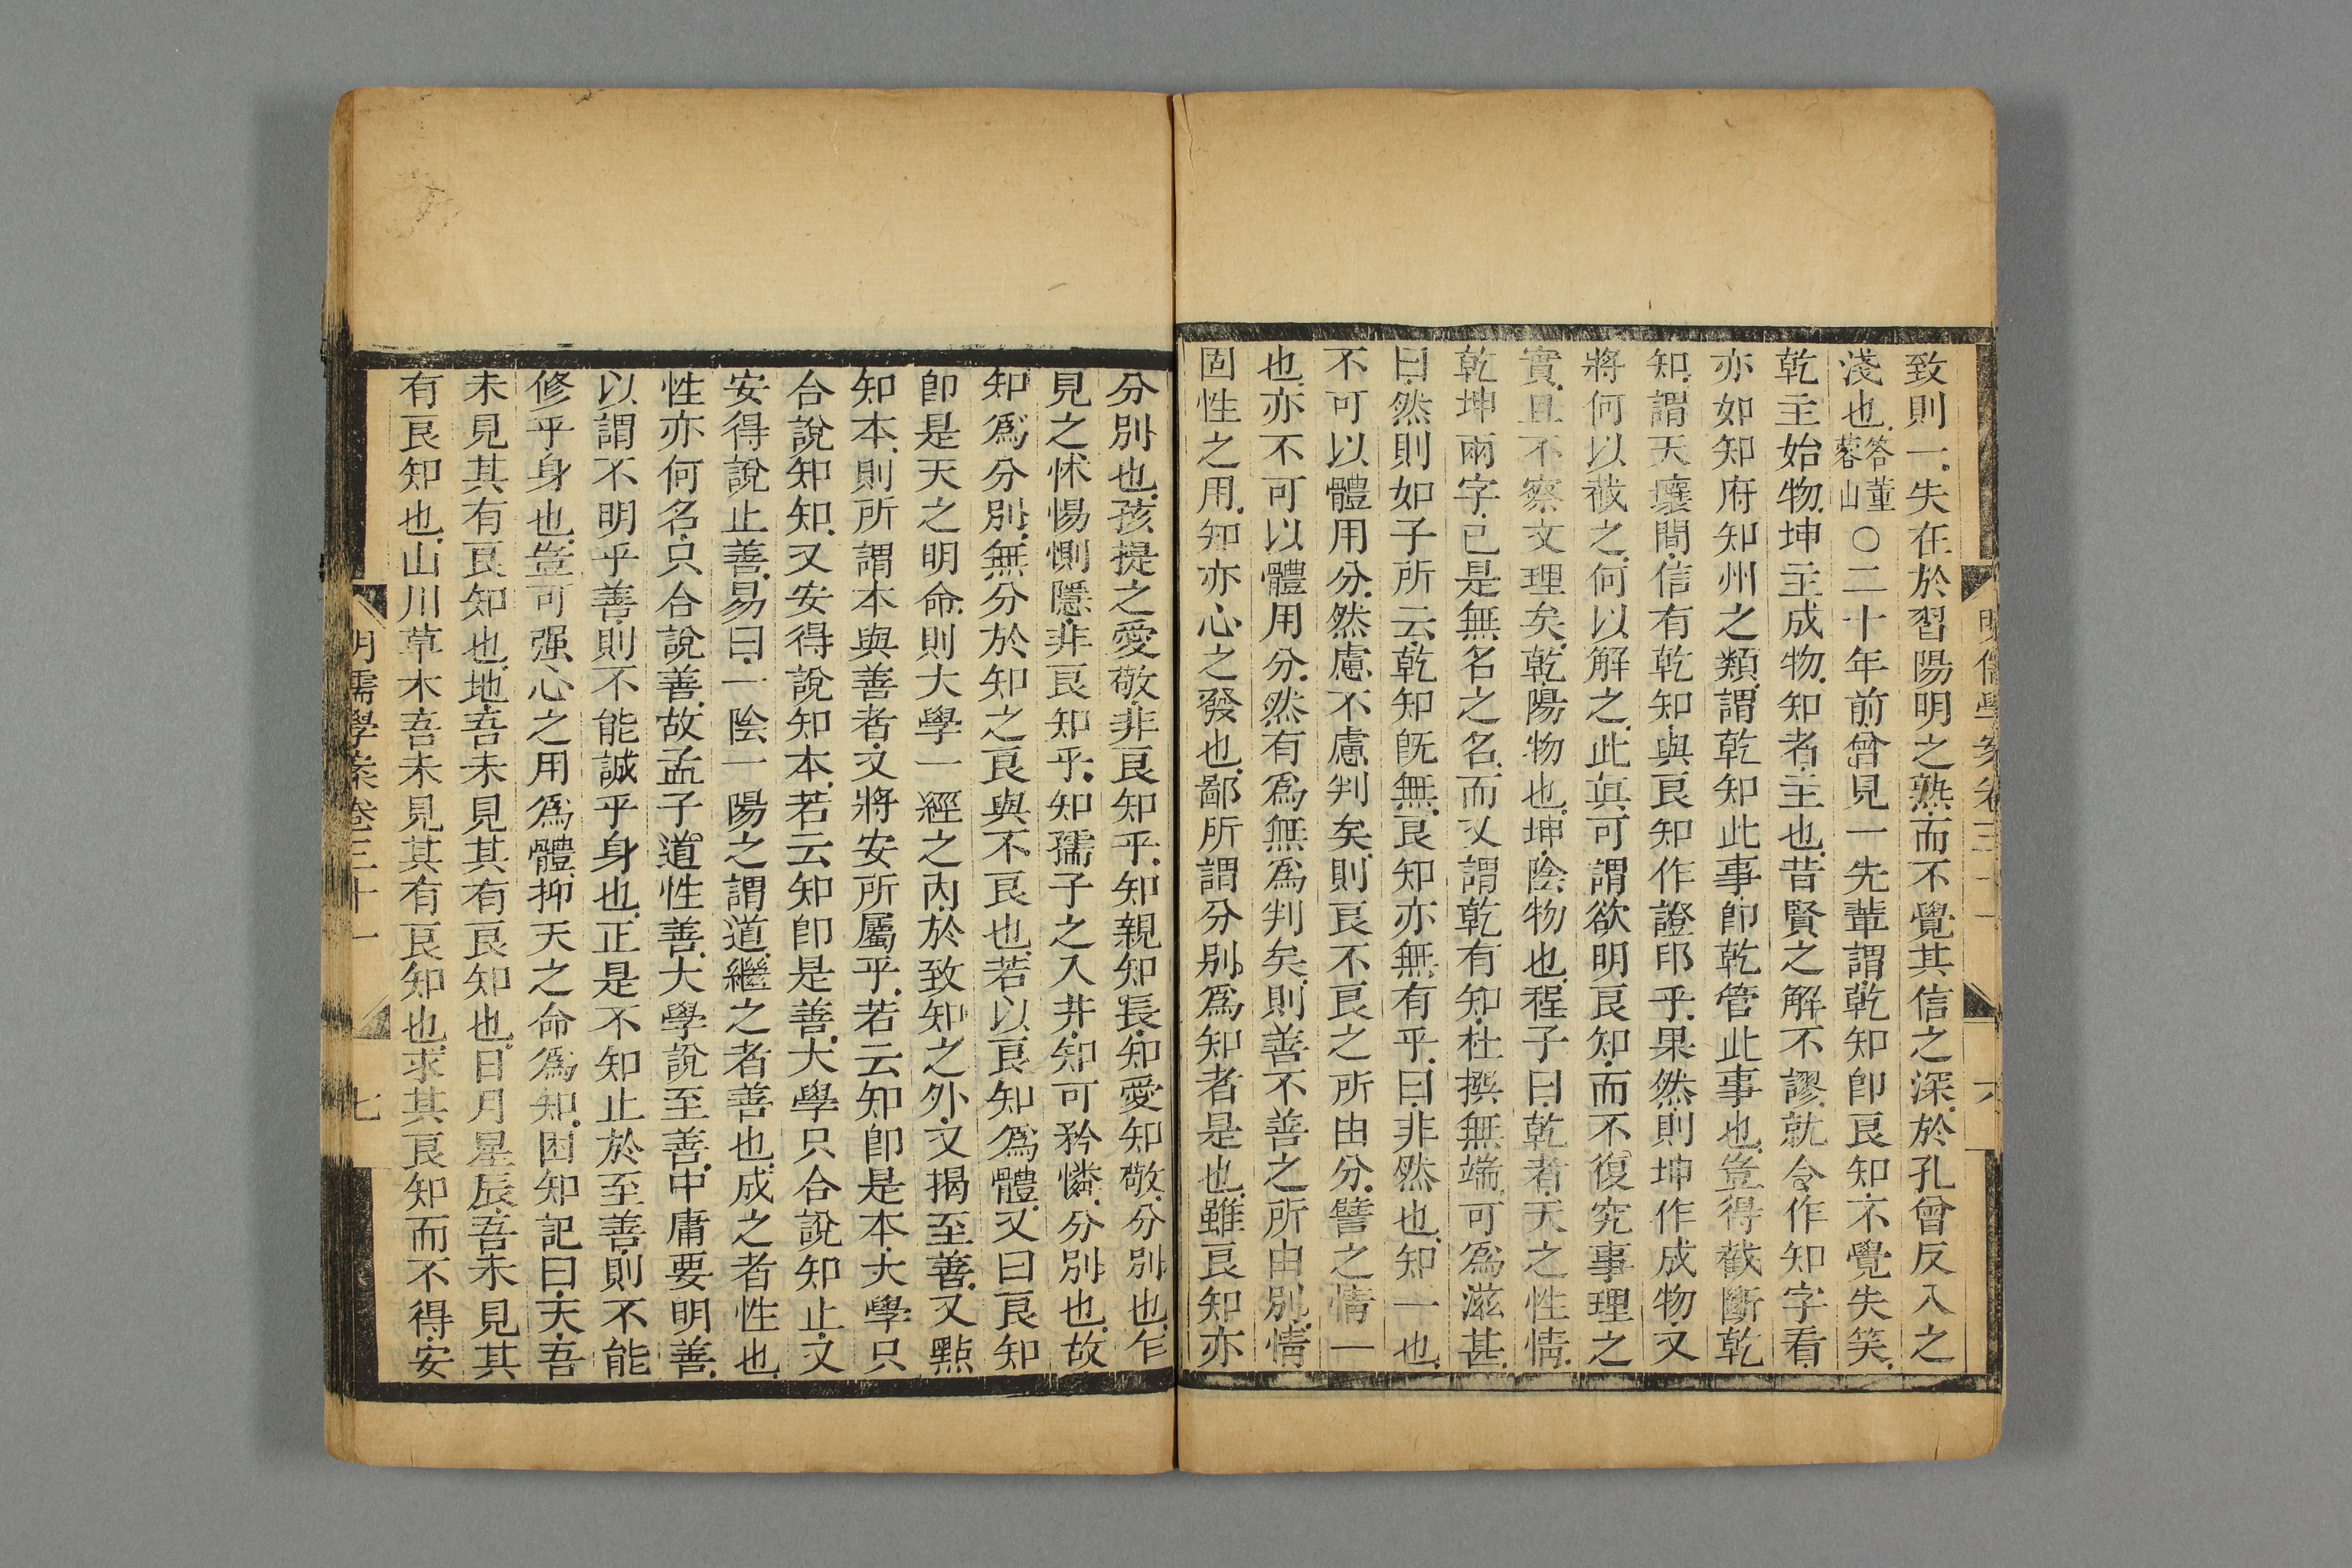 明儒學案卷三十一
六
致則一失在於習陽明之熟而不覺其信之深於孔曾反入之
淺也答董蓉山〇二十年前曾見一先輩謂乾知卽良知不覺失笑
乾主始物坤主成物知者主也昔賢之解不謬就令作知字看
亦如知府知州之類謂乾知此事卽乾管此事也豈得截斷乾
知謂天壤間信有乾知與良知作證印乎果然則坤作成物又
將何以截之何以解之此眞可謂欲明良知而不復究事理之
實且不察文理矣乾陽物也坤陰物也程子曰乾者天之性情
乾坤兩字已是無名之名而又謂乾有知杜撰無端可爲滋甚
曰然則如子所云乾知旣無良知亦無有乎曰非然也知一也
不可以體用分然慮不慮判矣則良不良之所由分譬之情一
也亦不可以體用分然有爲無爲判矣則善不善之所由別情
固性之用知亦心之發也鄙所謂分別爲知者是也雖良知亦
分別也孩提之愛敬非良知乎知親知長知愛知敬分別也乍
見之怵惕惻隱非良知乎知孺子之入井知可矜憐分別也故
知爲分別無分於知之良與不良也若以良知爲體又曰良知
卽是天之明命則大學一經之內於致知之外又揭至善又點
知本則所謂本與善者又將安所屬乎若云知卽是本大學只
合說知知又安得說知本若云知卽是善大學只合說知止又
安得說止善易曰一陰一陽之謂道繼之者善也成之者性也
性亦何名只合說善故孟子道性善大學說至善中庸要明善
以謂不明乎善則不能誠乎身也正是不知止於至善則不能
修乎身也豈可强心之用爲體抑天之命爲知困知記曰天吾
未見其有良知也地吾未見其有良知也日月星辰吾未見其
有良知也山川草木吾未見其有良知也求其良知而不得安
明儒學案卷三十一
七